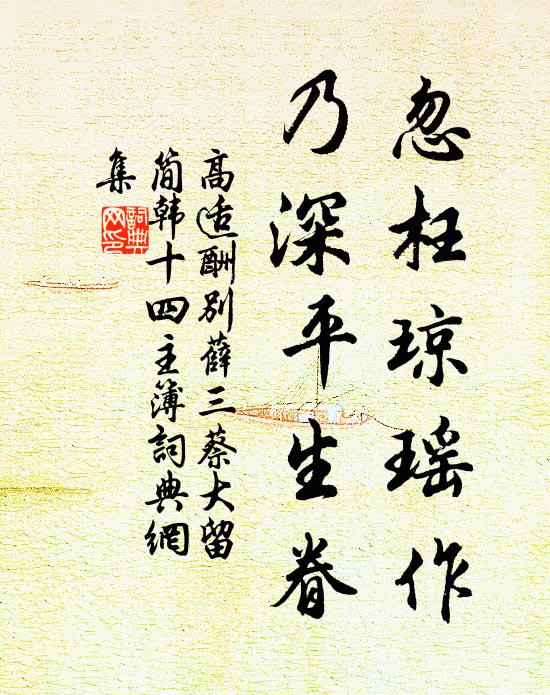 忽枉琼瑶作
乃深平生眷
高适酬别薛三蔡大留
简韩十四主簿詞典網
集
詞典网印